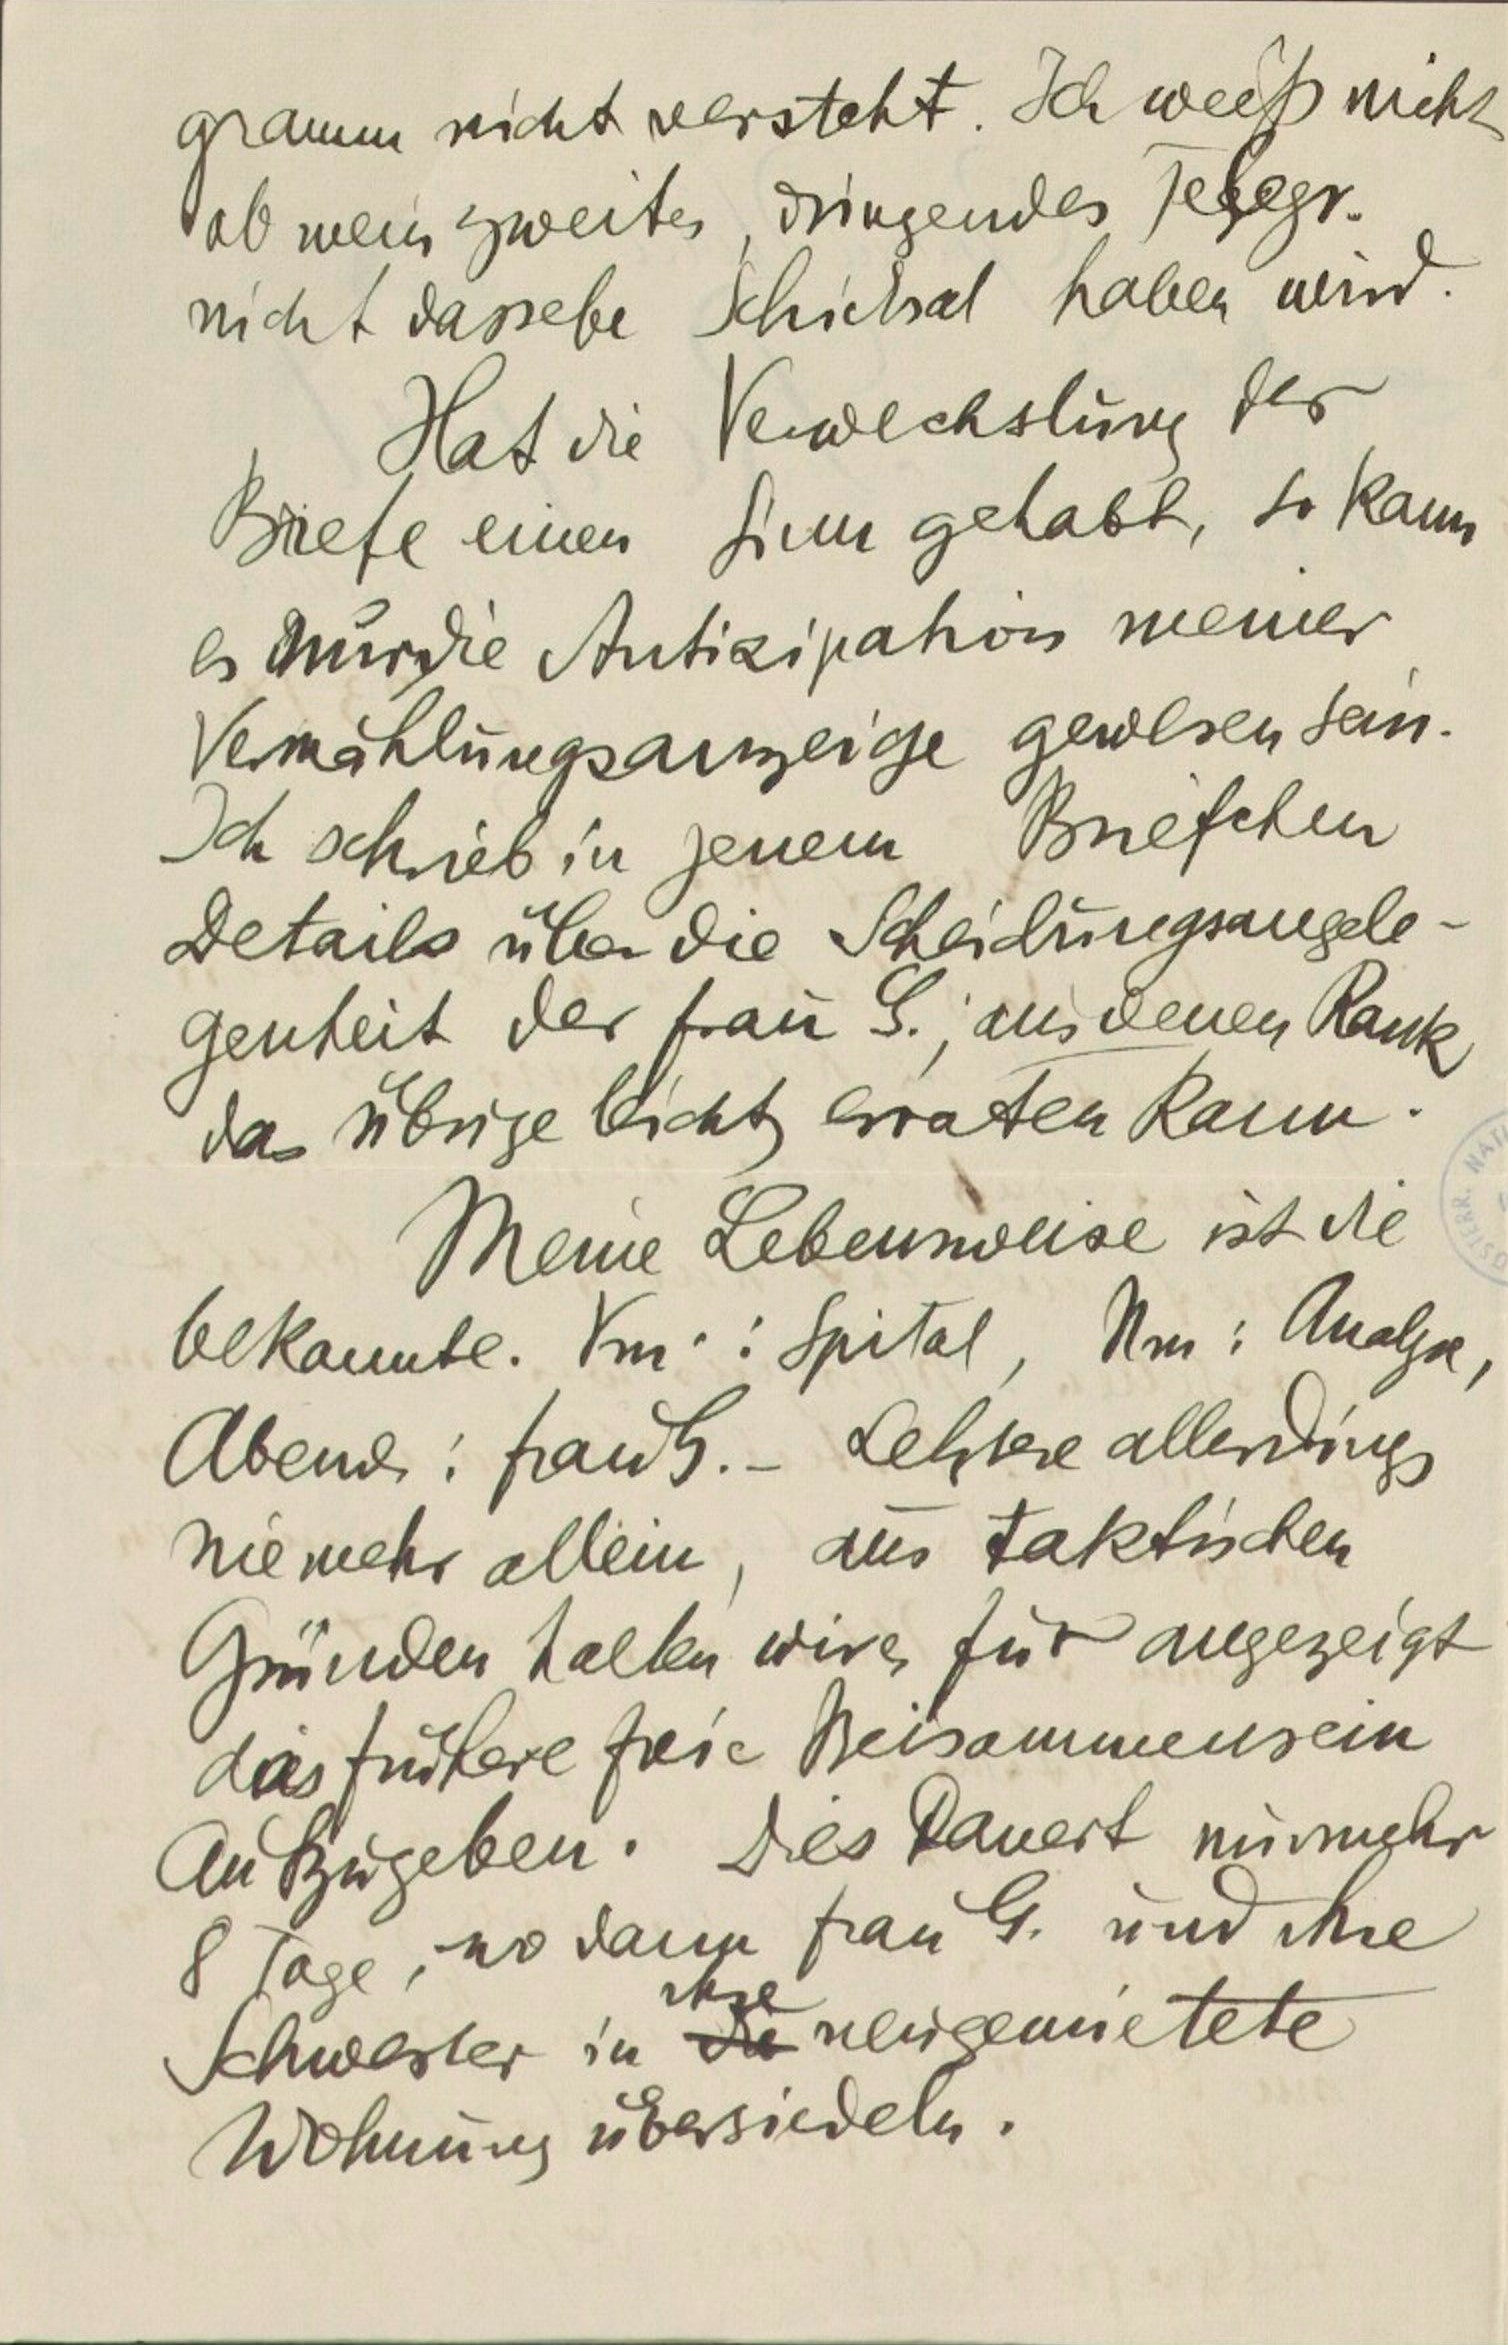 gramm nicht versteht. Ich weiß nicht
ob mein zweites, dringendes Telegr.
nicht dasselbe Schicksal haben wird.
Hat die Verwechslung der
Briefe einen Sinn gehabt, so kann
es nur die Antizipation meiner
Vermählungsanzeige gewesen sein.
Ich schrieb in jenem Briefchen
Details über die Scheidungsangele-
genheit der Frau G., aus denen Rank
das übrige leicht erraten kann.
Meine Lebensweise ist die
bekannte. Vm.: Spital, Nm: Analyse,
Abends: Frau G. – Letztere allerdings
nie mehr allein, aus taktischen
Gründen halten wir es für angezeigt
das frühere freie Beisammensein
aufzugeben. Dies dauert nur mehr
8 Tage, wo dann Frau G. und ihre
ihre
Schwester in die neugemietete
Wohnung übersiedeln.
ÖSTERR. NATI